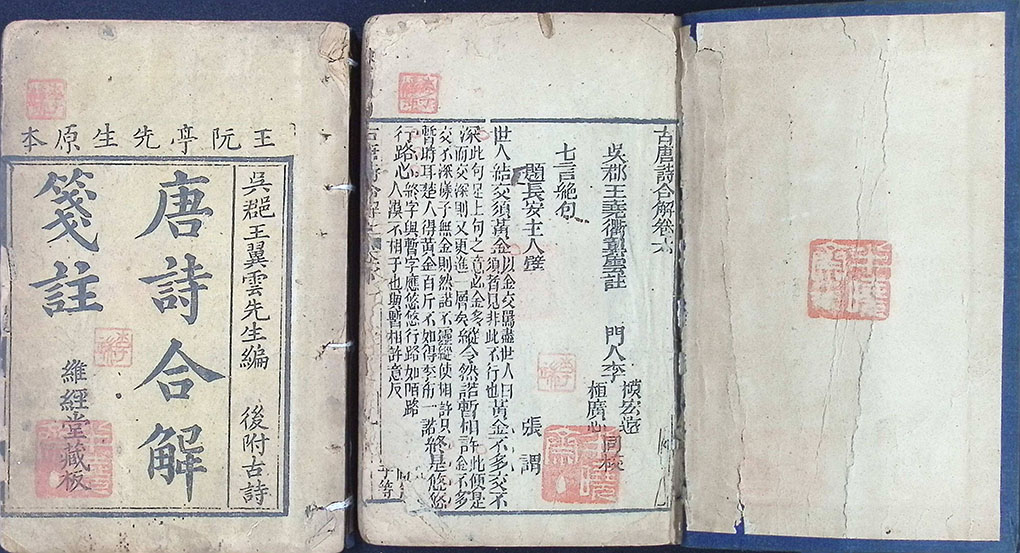 王阮亭先生原本
吳郡王翼雲先生編　後附古詩
唐詩合解
箋註
維經堂藏板
古唐詩合解卷六
吳郡王堯衢翼雲註　門人李
桓廣心
同校
七言絕句
題長安主人壁　張謂
世人結交須黃金
以金交爲盡世人曰
須者見非此不行也
黃金不多交不
深
此句足上句之意必金多
而交深則又更進一層矣
縱令然諾暫相許
此便是
金不多
交不深樣子無金則然諾不靈縱使相許只
暫時耳楚人得黃金百斤不如得季布一諾
終是悠悠
行路心
終字與暫字應悠悠行路如陌路
人漠不相于也與暫相許意反